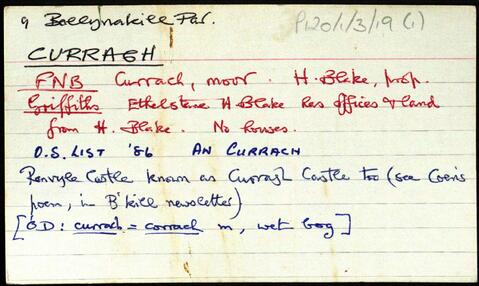 9 Ballynakill Par. P120/1/3/19 (1)
CURRAGH
FNB Currach, moor. H. Blake, prop.
Griffiths Ethelstane H Blake has offices & land
from H. Blake. No houses.
O.S. LIST '86 AN CURRACH
Renvyle Castle known as Curragh Castle too (see Coen's
poem, in B'kill newsletter)
[ÓD: currach = corrach m, wet bog]